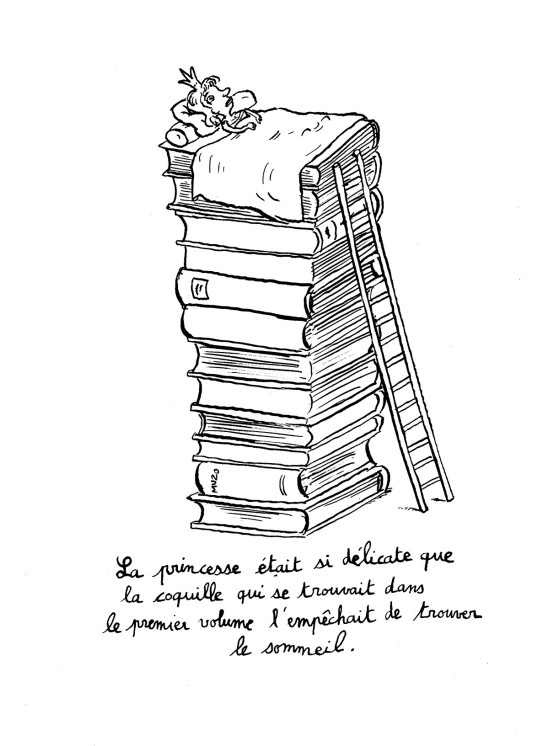 MUZO
La princesse était si délicate que
la coquille qui se trouvait dans
le premier volume l'empêchait de trouver
le sommeil.